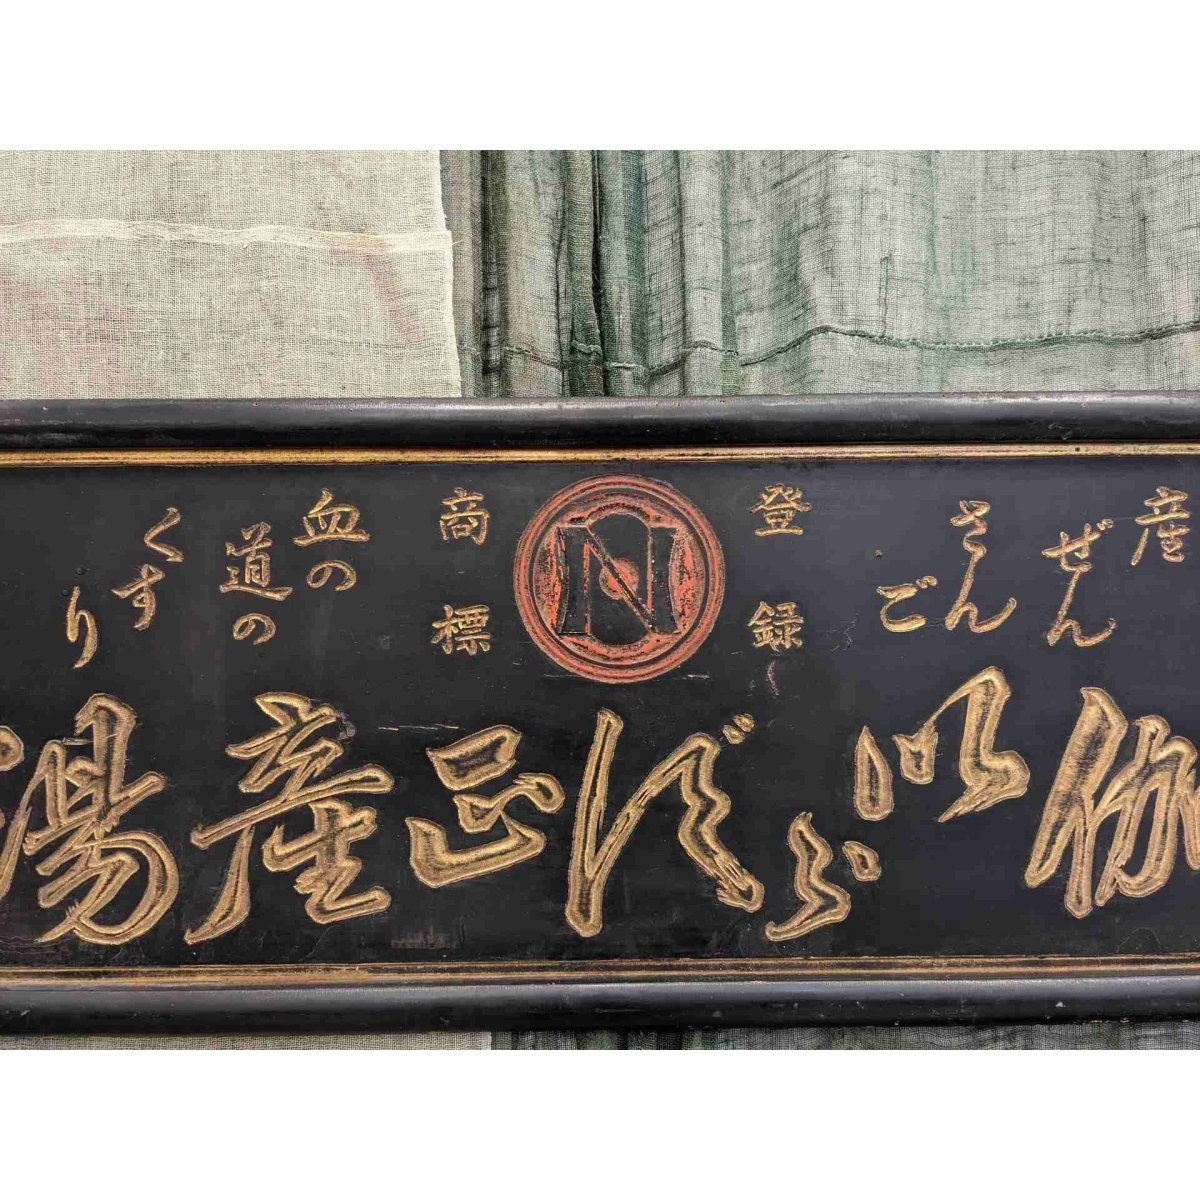 産ぜんさんご
登録
N
商標
血の道のくすり
伽以らず正産湯